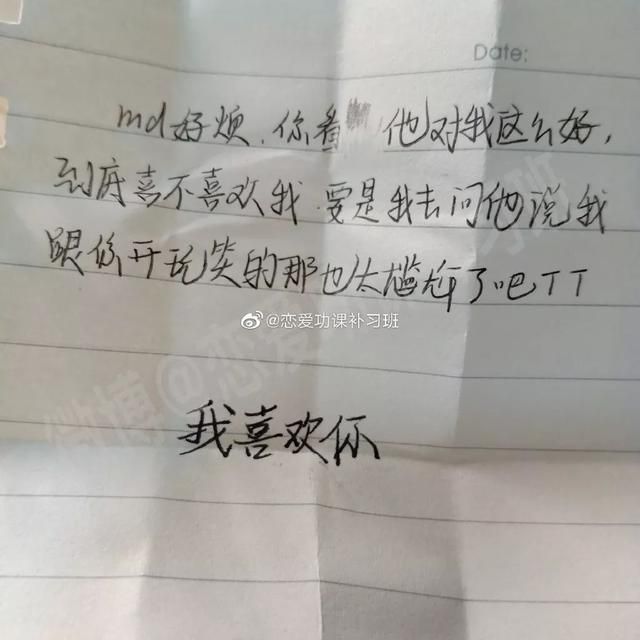 Date:
md好烦.你看 他对我这么好,
到底喜不喜欢我.要是我去问他说我
跟你开玩笑的那也太尴尬了吧TT
@恋爱功课补习班
我喜欢你
微博@恋爱功课补习班